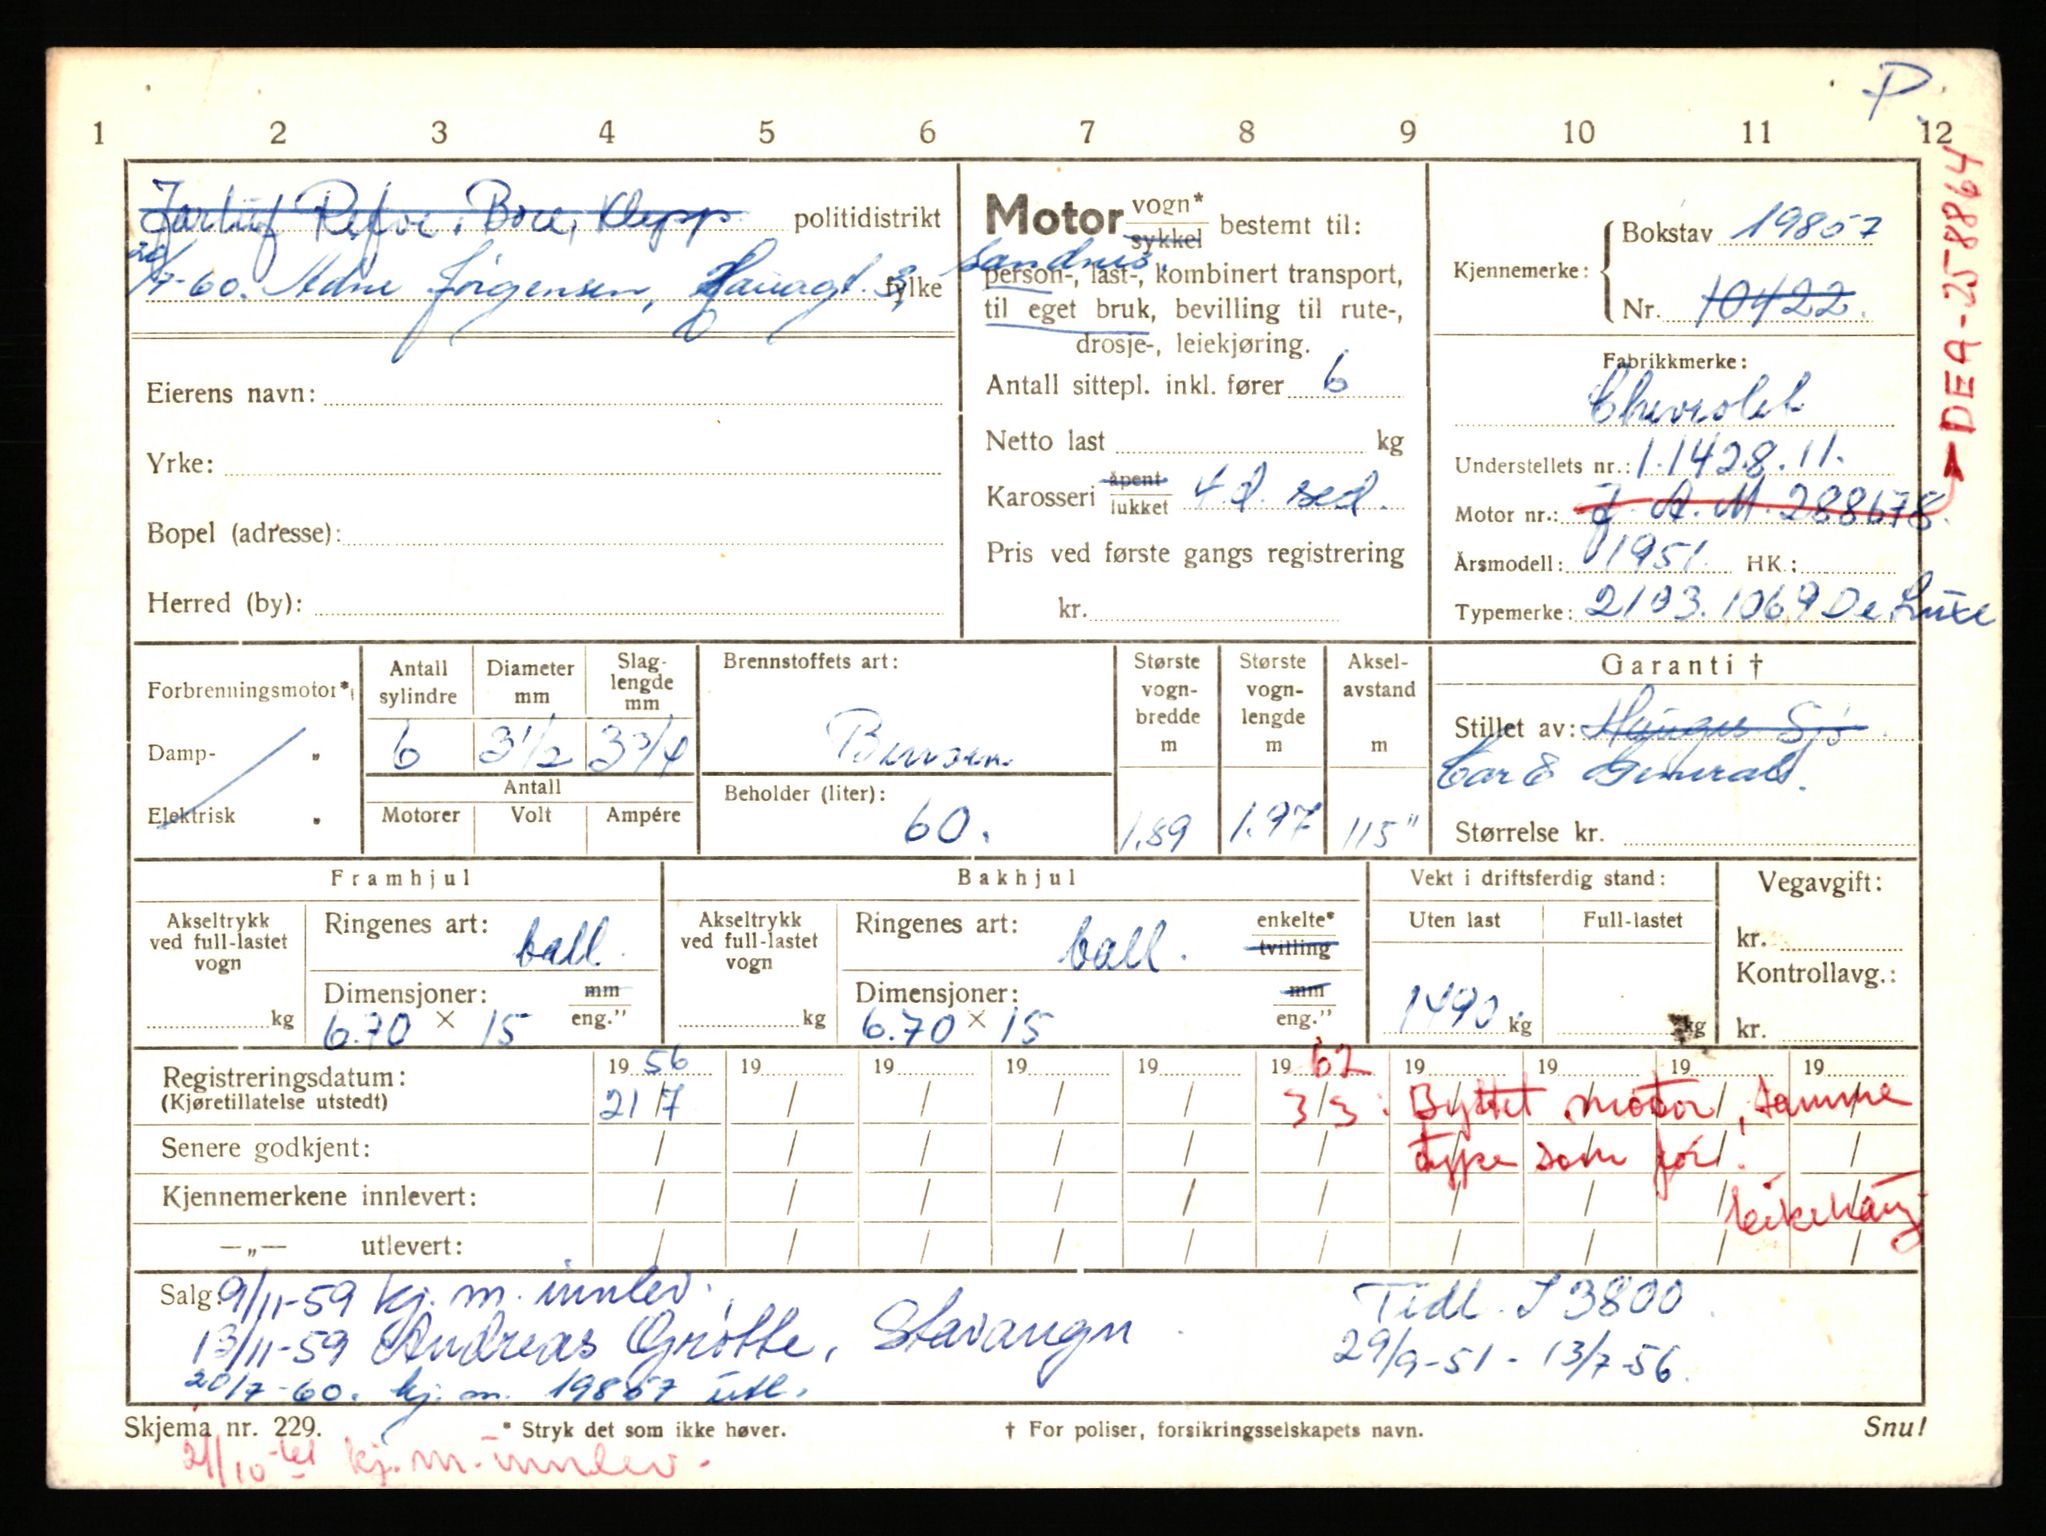 P.
1 2 3 4 5 6 7 8 9 10 11 12
Refve, Bore, Klepp politidistrikt
20/7-60. Adne Jørgensen, Hauagt. 3, fylke
Sandnes.
Eierens navn:
Yrke:
Bopel (adresse):
Herred (by):
Motor vogn* sykkel bestemt til:
person-, last-, kombinert transport,
til eget bruk, bevilling til rute-,
drosje-, leiekjøring.
Antall sittepl. inkl. fører 6
Netto last kg
Karosseri åpent lukket 4 d. sed.
Pris ved første gangs registrering
kr.
Kjennemerke:
Bokstav 19857
Nr. 10422.
Fabrikkmerke:
Chevrolet
Understellets nr.: 1.1428.11.
Motor nr.: J.A.M. 288678.
DEA-258864
Årsmodell: 1951. HK.:
Typemerke: 2103.1069 De Luxe
Forbrenningsmotor*,
Damp- „
Elektrisk „
Antall sylindre
6
Diameter mm
3 1/2
Slag-lengde mm
3 3/4
Antall
Motorer Volt Ampére
Brennstoffets art:
Bensin.
Beholder (liter):
60.
Største vogn-bredde m
1.89
Største vogn-lengde m
1.97
Aksel-avstand m
115"
Garanti †
Stillet av:
Car & General.
Størrelse kr.
Framhjul
Akseltrykk ved full-lastet vogn
kg
Ringenes art: ball.
Dimensjoner: mm
6.70 × 15 eng."
Bakhjul
Akseltrykk ved full-lastet vogn
kg
Ringenes art: ball. enkelte* tvilling
Dimensjoner: mm
6.70 × 15 eng."
Vekt i driftsferdig stand:
Uten last Full-lastet
1490. kg kg
Vegavgift:
kr.
Kontrollavg.:
kr.
19 56 19 19 19 19 19 62 19 19 19 19
Registreringsdatum:
(Kjøretillatelse utstedt) 21/7 3/3: Byttet motor, samme
Senere godkjent: type som før.
Kjennemerkene innlevert:
—„— utlevert:
Salg: 9/11-59 kj.m. innlev.
13/11-59 Andreas Grøtte, Stavanger
20/7-60. kj.m. 19857 utl.
Tidl. J 3800.
29/9-51 - 13/7-56.
Skjema nr. 229. * Stryk det som ikke høver. † For poliser, forsikringsselskapets navn. Snu!
21/10-61 kj.m. innlev.